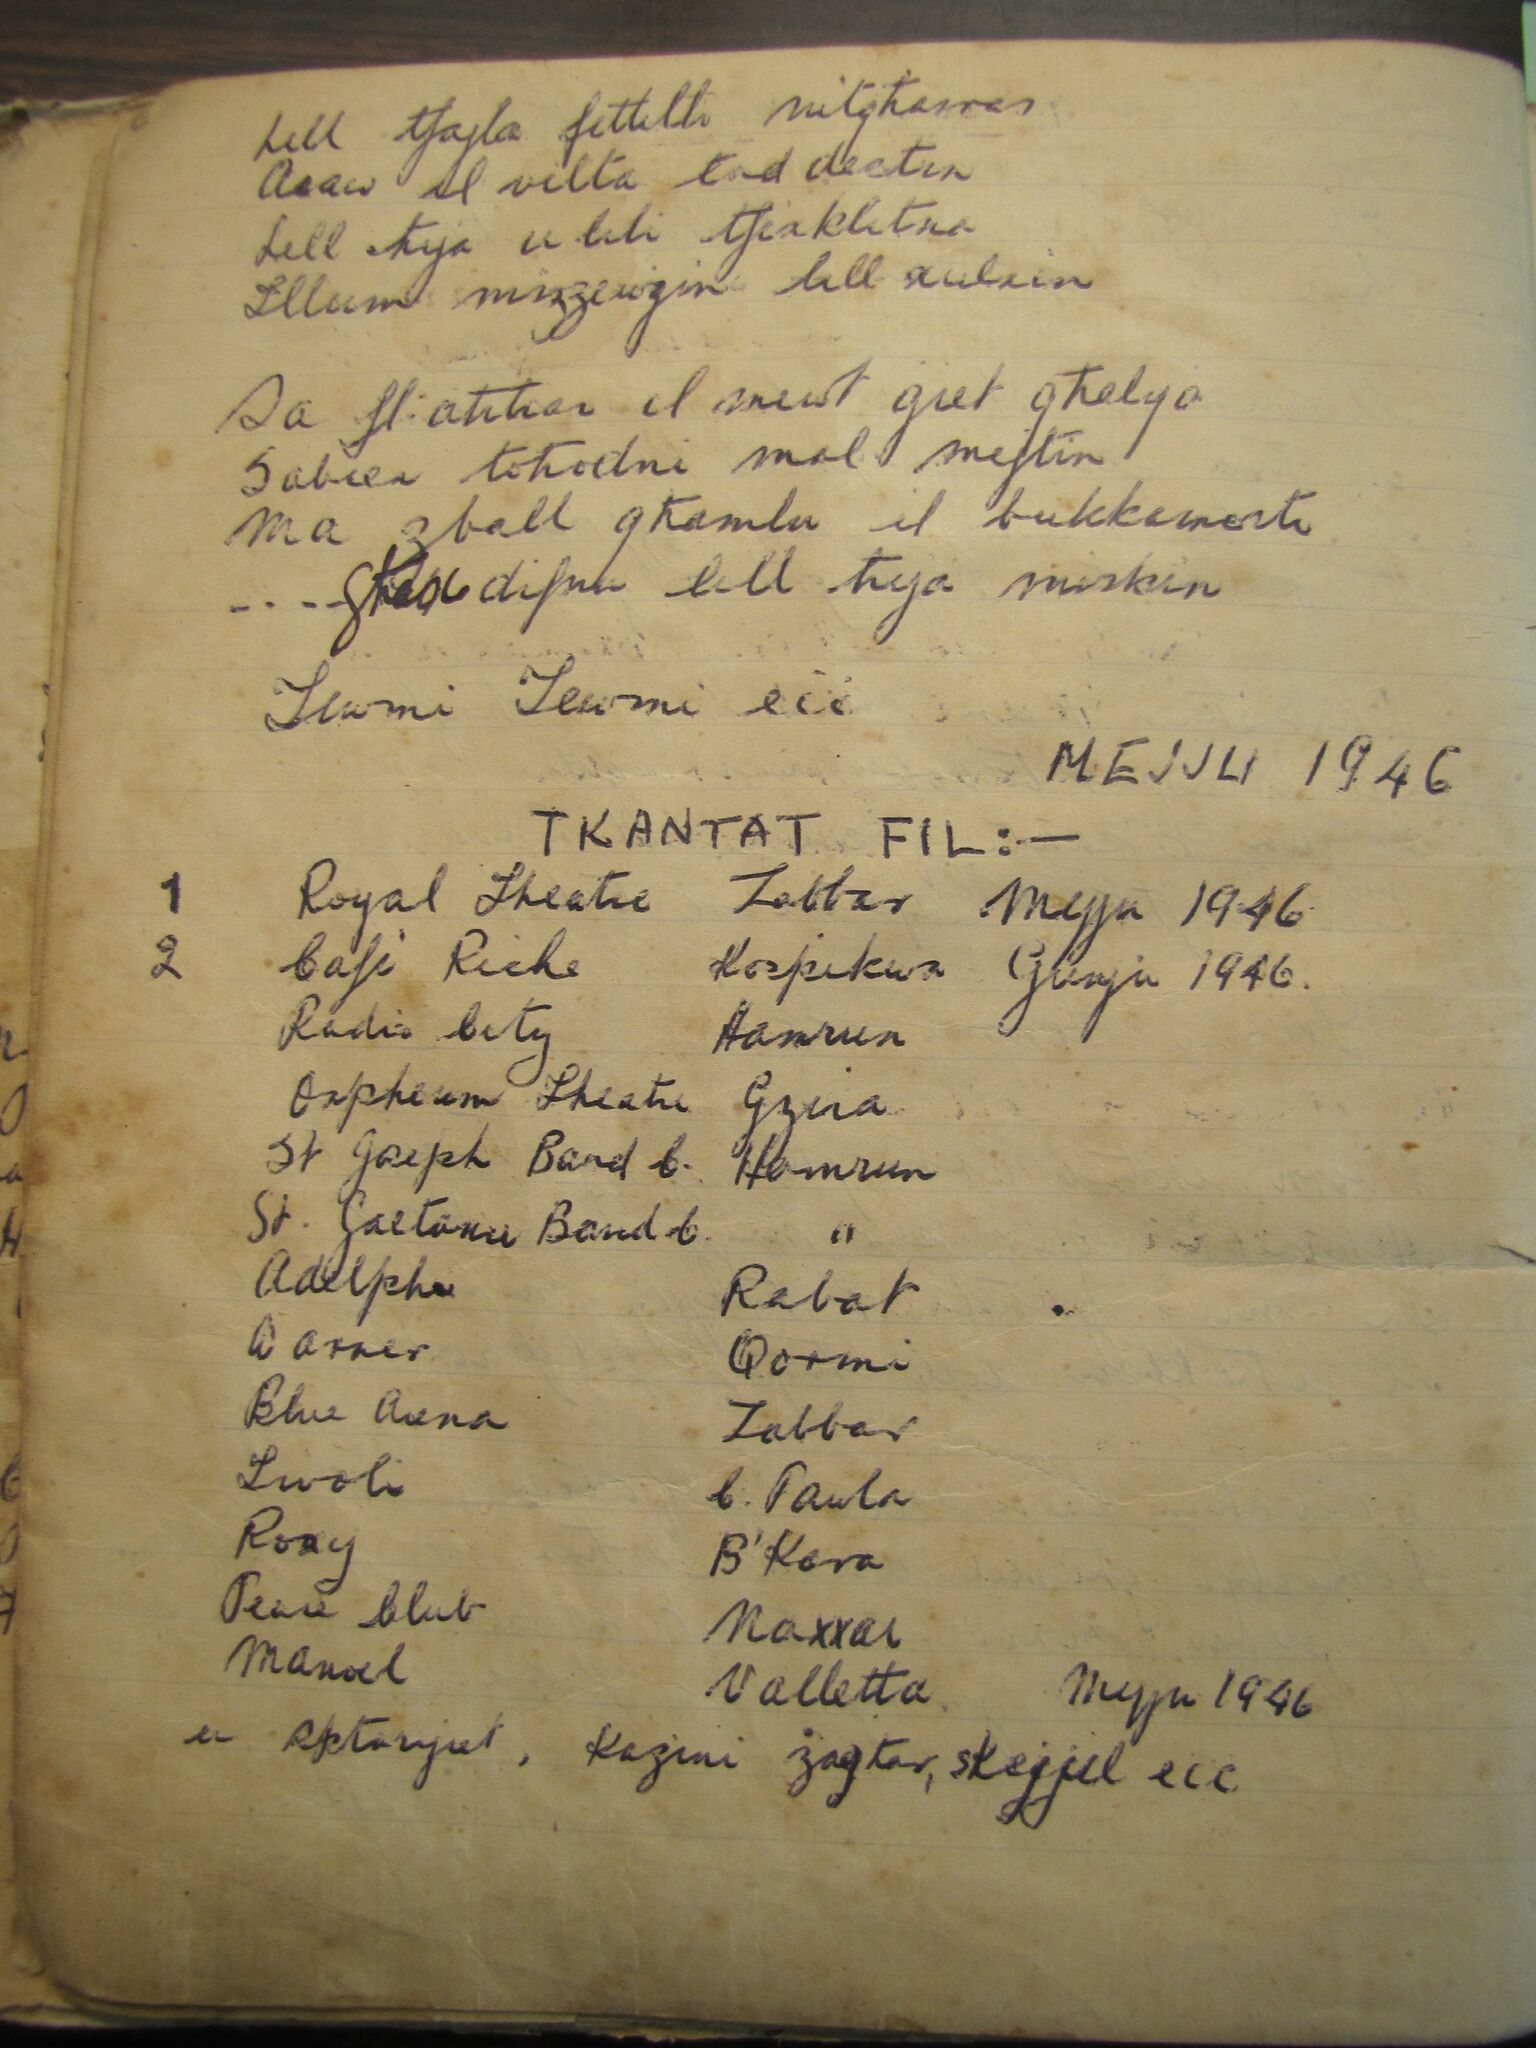 Lill tfajla fettilli nitgħawar
Araw il vilta tad destin
Lill ħija u lili tfixklitna
Illum mizzewgin lill xulxin
Sa fl-aħħar il mewt giet għalija
Sabiex toħodni mal mejtin
Ma zball għamlu il bukkamorti
.... Għax difnu lill ħija miskin
Jewmi Jewmi eċċ
MEJJU 1946
TKANTAT FIL:-
1 Royal Theatre Zabbar Mejju 1946
2 Cafè Riche Kospikwa Gunju 1946.
Radio City Hamrun
Orpheum Theatre Gzira
St Joseph Band C. Hamrun
St. Gaetano Band C. "
Adelphi Rabat
Warner Qormi
Blue Arena Zabbar
Tivoli C. Paula
Roxy B'Kara
Peace Club Naxxar
Manoel Valletta Mejju 1946
u sptarijiet, Kazini zagħar, skejjel ecc